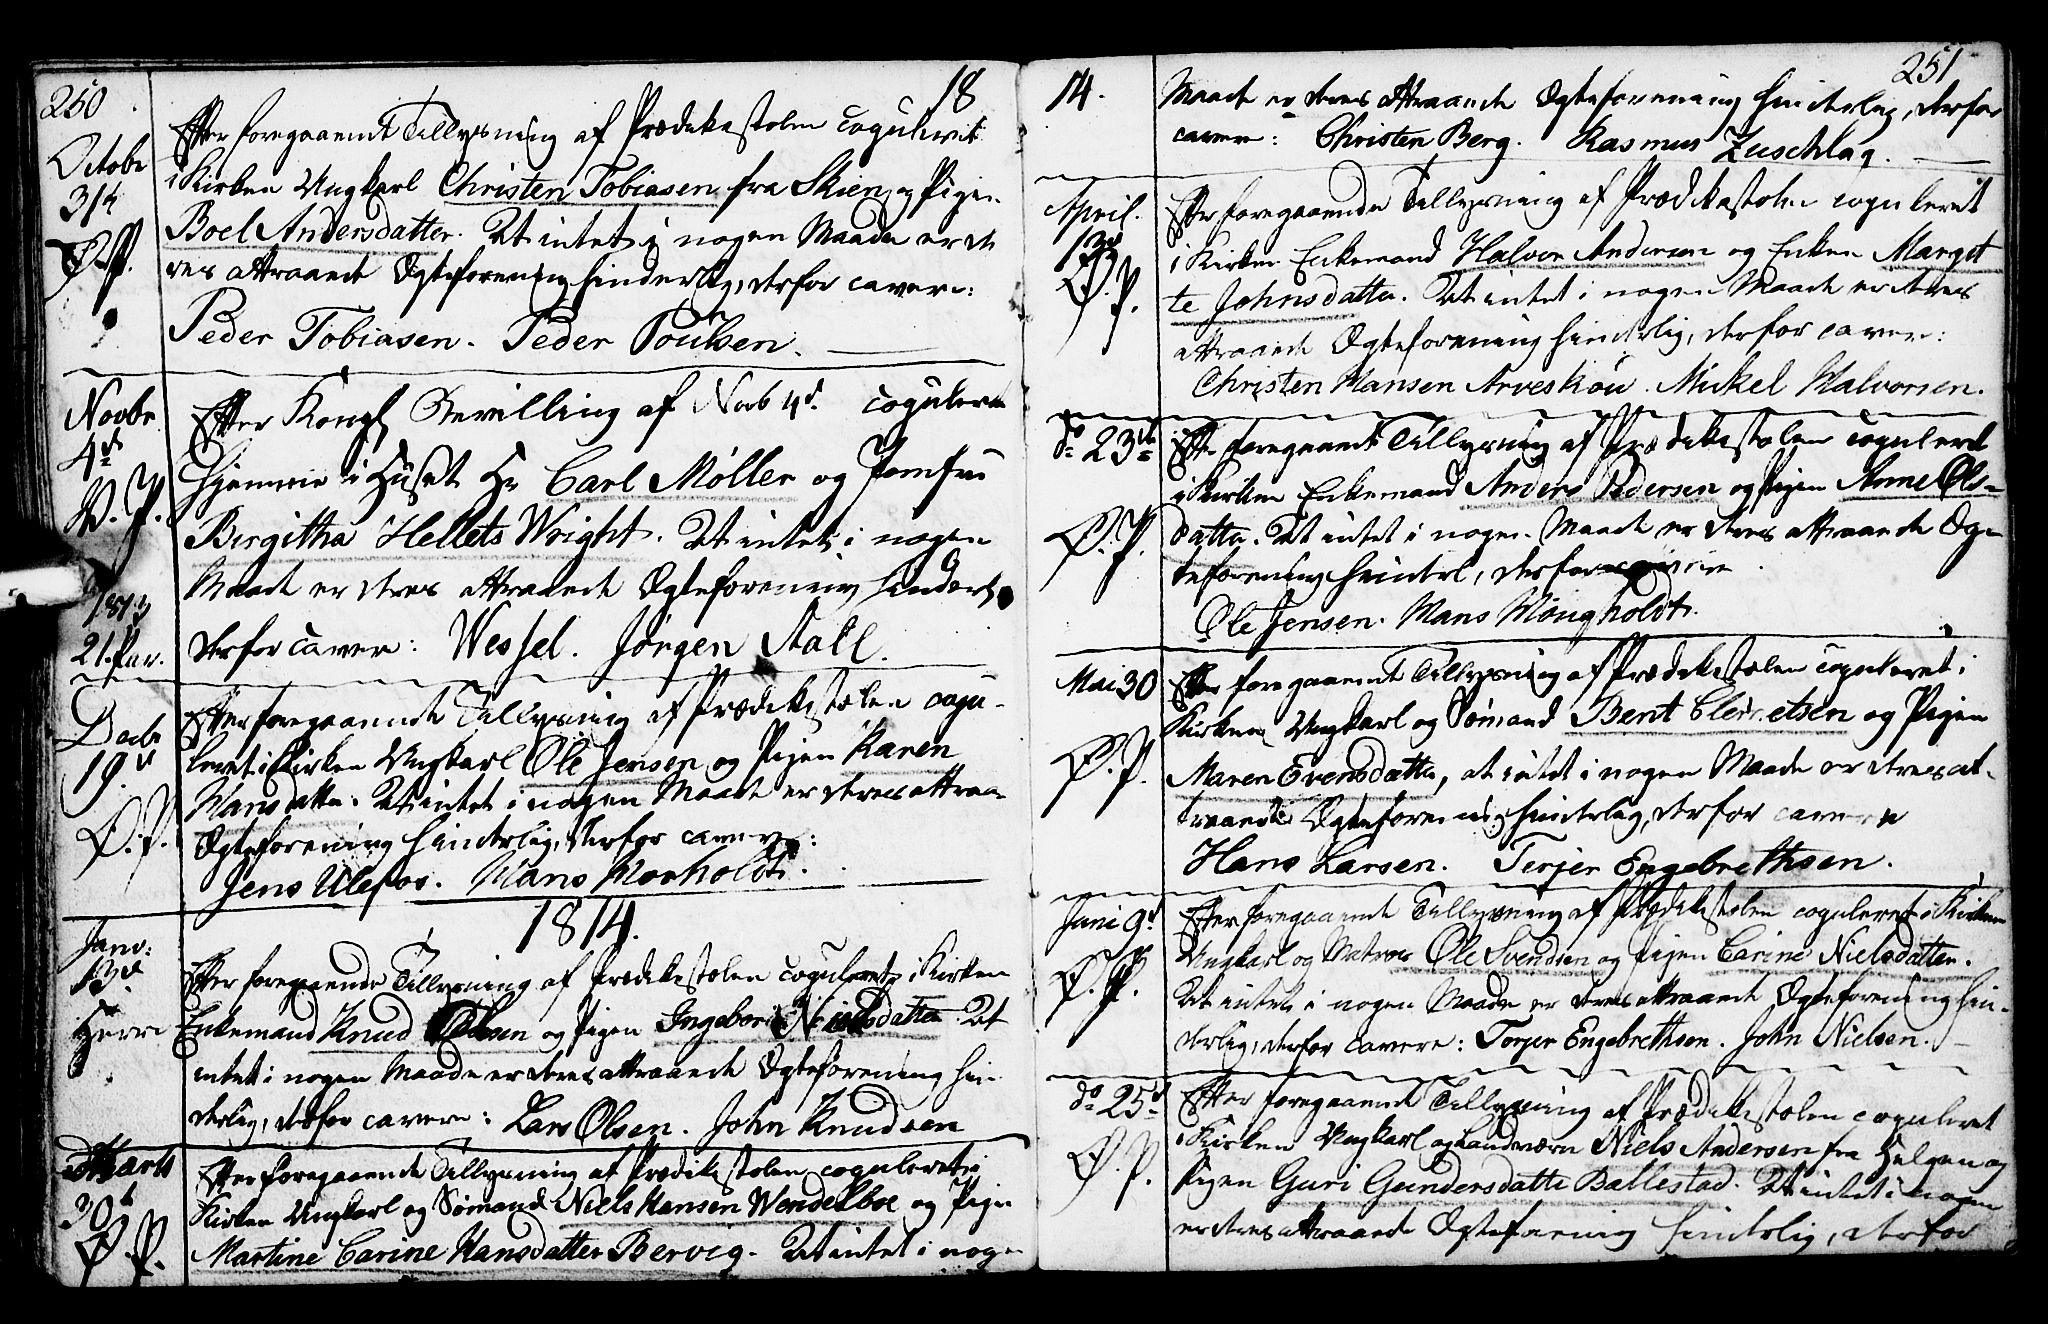 250
18
Octobr
31te
Ø. P.
Efter foregaaende Tillysning af Prædikestolen copuleret
i Kirken Ungkarl Christen Tobiasen fra Skien og Pigen
Boel Andersdatter. At intet i nogen Maade er de-
res attraaede Ægteforening hinderlig, derfor cavere:
Peder Tobiasen. Peder Poulsen.
Novbr
4de
Ø. P.
1813
21. Par.
Efter Kongl. Bevilling af Novb 4d. copuleret
hjemme i Huset Hr Carl Møller og Jomfru
Birgitha Hellets Wright. At intet i nogen
Maade er deres attraaede Ægteforening hinderlig
derfor cavere: Wessel. Jørgen Aall.
Decbr
19d
Ø. P.
Efter foregaaende Tillysning af Prædikestolen copu-
leret i Kirken Ungkarl Ole Jensen og Pigen Karen
Hansdatter. At intet i nogen Maade er deres attraa-
Ægteforening hinderlig, derfor cavere:
Jens Ulefos. Hans Morholdt.
1814.
Janv:
13d
Herre
Efter foregaaende Tillysning af Prædikestolen copuleret i Kirken
Enkemand Knud Olsen og Pigen Ingebor Nielsdatter At
intet i nogen Maade er deres attraaede Ægteforening hin-
derlig, derfor cavere: Lars Olsen. John Knudsen
Marts
30te
Ø. P.
Efter foregaaende Tillysning af Prædikestolen copuleret i
Kirken Ungkarl og Sømand Niels Hansen Wendelboe og Pigen
Martine Carine Hansdatter Bervig. At intet i nogen
14.
251
Maade er deres attraaede Ægteforening hinderlig, derfor
cavere: Christen Berg. Rasmus Zuschlag.
April.
13d
Ø. P.
Efter foregaaende Tillysning af Prædikestolen copuleret
i Kirken Enkemand Halvor Andersen og Enken Margit
te Johnsdatter. At intet i nogen Maade er deres
attraaede Ægteforening hinderlig, derfor cavere:
Christen Hansen Arveskou. Mickel Halvorsen.
do 23de
Ø. P.
Efter foregaaende Tillysning af Prædikestolen copuleret
i Kirken Enkemand Anders Pedersen og Pigen Anne Ols-
datter. At intet i nogen Maade er deres attraaede Æg-
teforening hinderl, derfor cavere
Ole Jensen. Hans Mougholdt.
Mai 30
Ø. P.
Efter foregaaende Tillysning af Prædikestolen copuleret i
Kirken Ungkarl og Sømand Bent Clemetsen og Pigen
Maren Evensdatter, at intet i nogen Maade er deres at-
traaede Ægteforening hinderlig, derfor cavere
Hans Larsen. Terjer Engebrethsen.
Juni 9d
Ø. P.
Efter foregaaende Tillysning af Prædikestolen copuleret i Kirken
Ungkarl og Matros Ole Svendsen og Pigen Carine Nielsdatter.
At intet i nogen Maade er deres attraaede Ægteforening hin-
derlig, derfor cavere: Torjer Engebrethsen. John Nielsen.
do 25de
Ø. P.
Efter foregaaende Tillysning af Prædikestolen copuleret
i Kirken Ungkarl og Landværn Niels Andersen fra Helgen og
Pigen Guri Gundersdatter Ballestad. At intet i nogen
er deres attraaede Ægteforening hinderlig, derfor